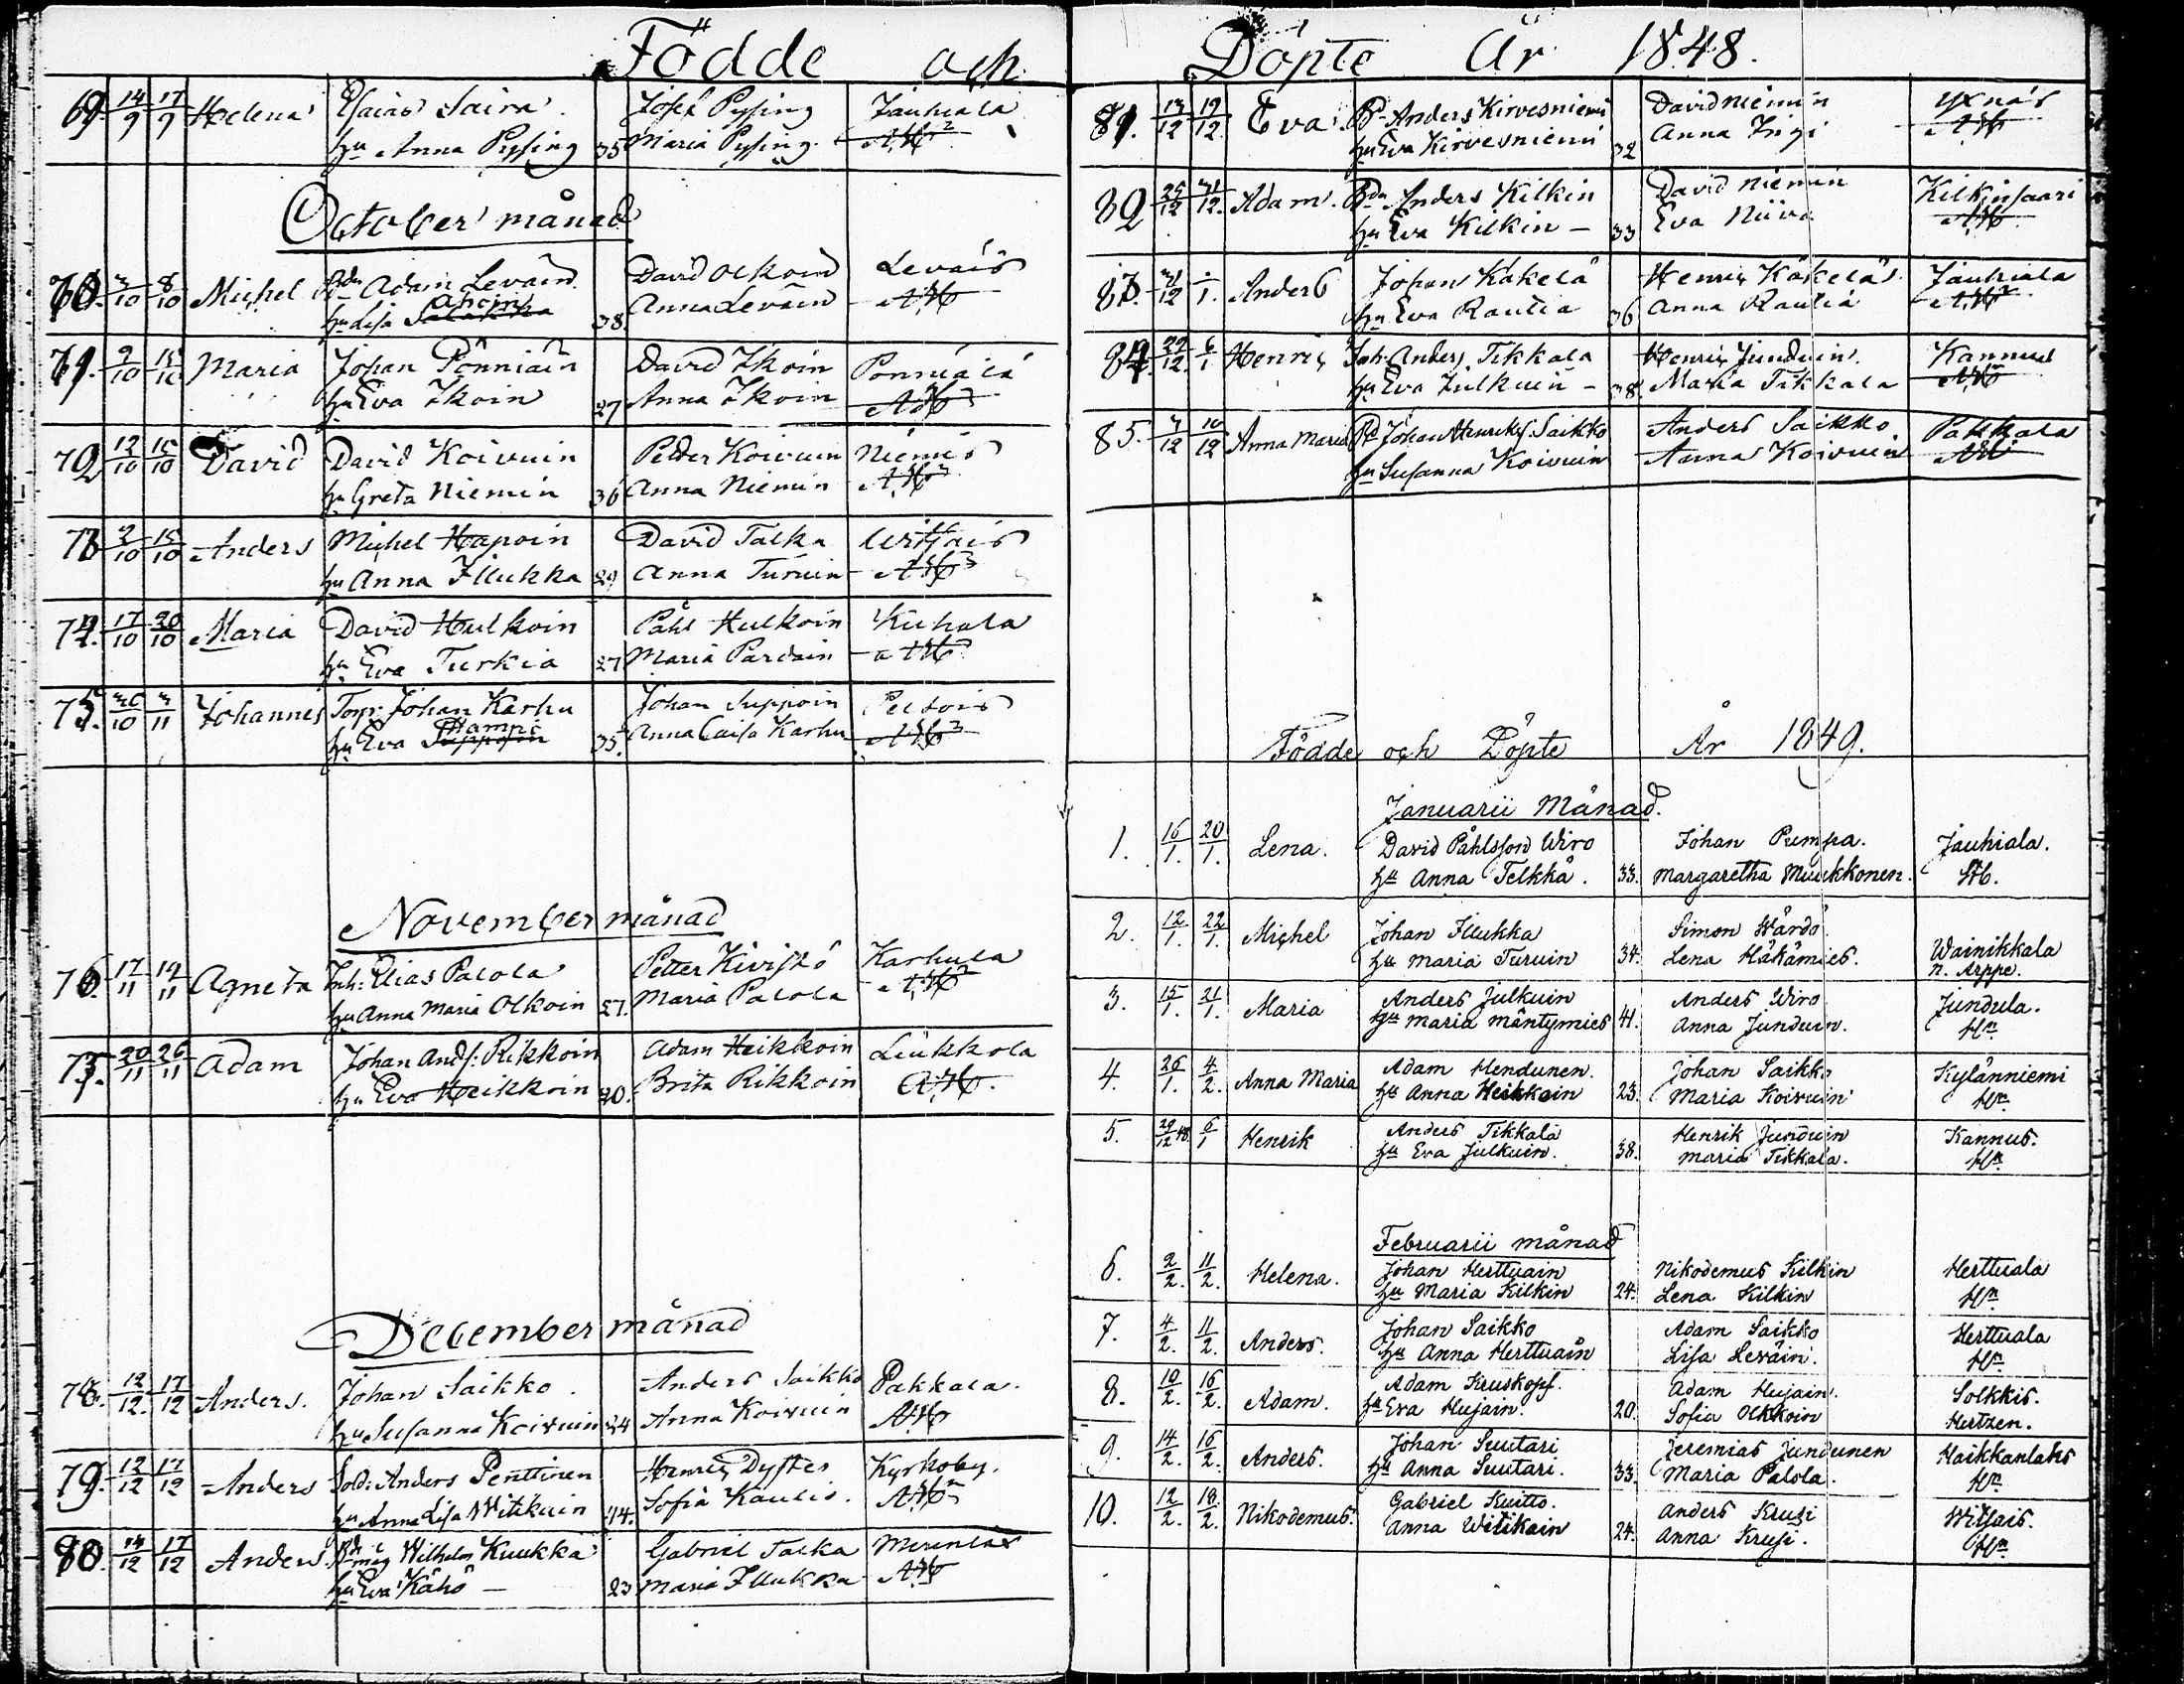 Födde och
69. 14/9 17/9 Helena Esaias Saira Josef Pysing Jauhiala
hu Anna Pysing 35 Maria Pysing
October månad
70. 3/10 8/10 Michel Adam Leväin David Olkoin Leväis
hu Lisa Ahoin 38. Anna Leväin
71. 9/10 15/10 Maria Johan Pönniäin David Ikoin Pönniälä
hu Eva Ikoin 27 Anna Ikoin
72 12/10 15/10 David David Koivuin Petter Koivuin Niemis
hu Greta Niemin 36 Anna Niemin
73 9/10 15/10 Anders Michel Hapoin David Talka Witsais
hu Anna Illukka 29 Anna Turuin
74. 17/10 20/10 Maria David Hulkoin Påhl Hulkoin Kuhala
hu Eva Turkia 27 Maria Pardain
75. 30/10 3/11 Johannes Torp: Johan Karhu Johan Suppoin Peltois
hu Eva Hampi 35. Anna Caisa Karhu
November månad
76. 17/11 19/11 Agneta Inh: Elias Palola Petter Kivistö Karhula
hu Anna Maria Olkoin 27. Maria Palola
20/11 26/11 Adam Johan Ands: Rikkoin Adam Heikkoin Leukkola
hu Eva Heikkoin 20. Brita Rikkoin
December månad
78. 12/12. 17/12 Anders. Johan Saikko. Anders Saikko Pakkala.
hu Susanna Koivuin 24 Anna Koivuin
79. 12/12 17/12 Anders Sold: Anders Penttinen Henric Dyster Kyrkoby.
hu Anna Lisa Witikain 44. Sofia Kaulis.
80. 14/12 17/12 Anders Wilhelm Kuukka Gabriel Talka Merenlax
hu Eva Kähö – 23 Maria Illukka
Döpte År 1848.
81. 13/12 19/12. Eva. Bd Anders Kirvesniemi David Niemin Yxnäs
hu Eva Kirvesniemi 32 Anna Ingi
82 25/12 31/12. Adam. Bdn Anders Kilkin David Niemin Kilkinsaari
hu Eva Kilkin – 33 Eva Niiva
83. 31/12 1. Anders Johan Käkelä Henric Käkelä Jauhiala
hu Eva Rautia 36 Anna Rautia
84. 29/12. 6/1 Henric Inh: Anders Tikkala Henric Junduin. Kannus
hu Eva Julkuin – 38. Maria Tikkala
85. 7/12 10/12 Anna Maria Bd Johan Henriks. Saikko Anders Saikko Pakkala
hu Susanna Koivuin Anna Koivuin
Födde och Döpte År 1849.
Januarii Månad.
1. 16/1. 20/1. Lena. David Påhlsson Wiro Johan Pumpa. Jauhiala.
hu Anna Telkkä. 33. Margaretha Muukkonen. Hb.
2. 12/1. 22/1. Michel Johan Illukka Simon Wårdo
hu Maria Turuin 34. Lena Häkämies. Wainikkala
n. Arppe.
3. 15/1. 21/1. Maria Anders Julkuin Anders Wiro Jundula.
hu Maria Mäntymies 41. Anna Junduin. Hn
4. 26/1. 4/2. Anna Maria Adam Hendunen. Johan Saikko Kylänniemi
hu Anna Heikkain 23. Maria Koivuin Hn
5. 29/12 48. 6/1 Henrik Anders Tikkala Henrik Junduin Kannus.
hu Eva Julkuin. 38. Maria Tikkala. Hn
Februarii månad
6. 2/2. 11/2. Helena. Johan Herttuain Nikodemus Kilkin Herttuala
hu Maria Kilkin 24. Lena Kilkin Hn
7. 4/2. 11/2. Anders. Johan Saikko Adam Saikko Herttuala
hu Anna Herttuain Lisa Leväin. Hn
8. 10/2. 16/2. Adam. Adam Kruskopf. Adam Hujain. Solkkis.
hu Eva Hujain. 20. Sofia Olkkoin Hertzen.
9. 14/2. 16/2. Anders. Johan Suutari Jeremias Jundunen Haikkanlahs
hu Anna Suutari. 33. Maria Palola. Hn
10. 12/2. 18/2. Nikodemus. Gabriel Kuitto. Anders Krusi Witsais.
Anna Witikain 24. Anna Krusi. Hn